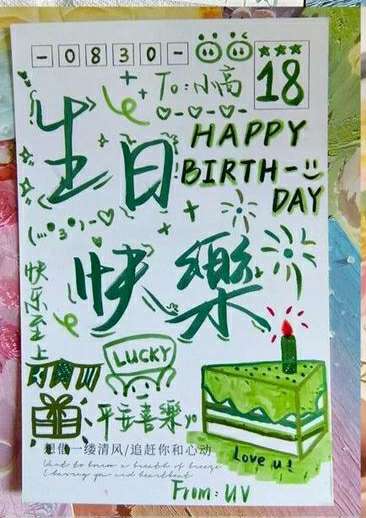 -0830-
To:小高
18
HAPPY
BIRTH-
DAY
生日
快樂
快乐至上
LUCKY
平安喜樂
想借一缕清风/追赶你和心动
Love u!
From: UV